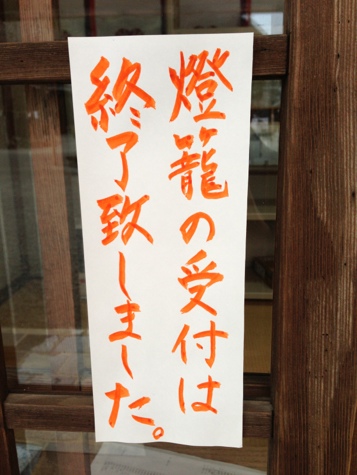 燈籠の受付は
終了致しました。